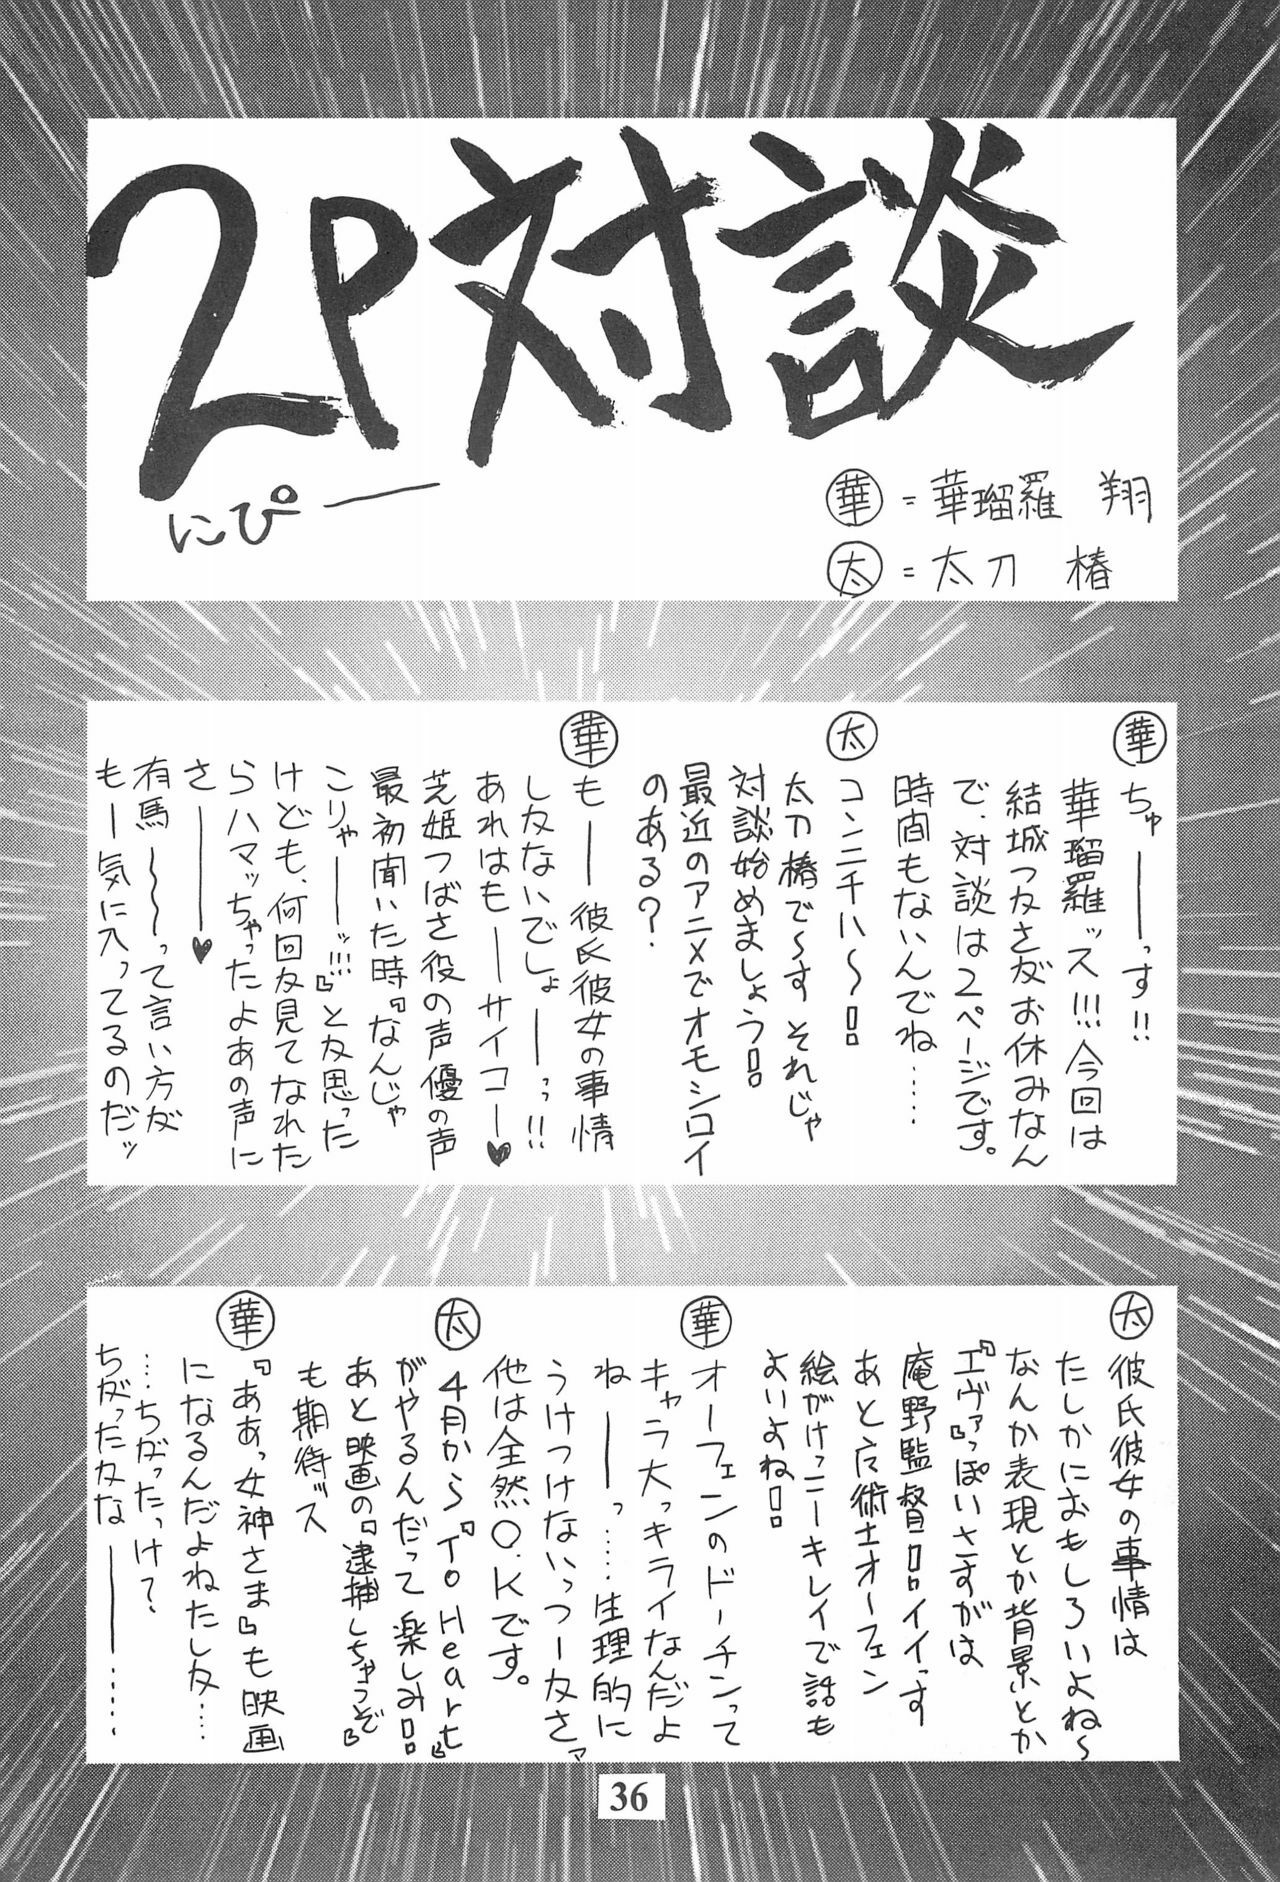 2P対談
にぴー
華=華瑠羅 翔
太=太刀 椿
華 ちゅーーっす!!
華瑠羅ッス!!!今回は
結城つかさもお休みなん
で、対談は2ページです。
時間もないんでね……
太 コンニチハ〜!!
太刀椿で〜す それじゃ
対談始めましょう!!
最近のアニメでオモシロイ
のある?
華 もーー 彼氏彼女の事情
しかないでしょーーっ!!
あれはもーーサイコー♥
芝姫つばさ役の声優の声
最初聞いた時『なんじゃ
こりゃーーッ!!!』とか思った
けども、何回か見てなれた
らハマッちゃったよあの声に
さーーー♥
有馬〜〜〜って言い方が
もー気に入ってるのだッ
太 彼氏彼女の事情は
たしかにおもしろいよね〜
なんか表現とか背景とか
『エヴァ』っぽいさすがは
庵野監督!!イイっす
あと魔術士オーフェン
絵がけっこーキレイで話も
よいよね!!
華 オーフェンのドーチンって
キャラ大っキライなんだよ
ねーーっ……生理的に
うけつけないっつーかさァ
他は全然O.Kです。
太 4月から『To Heart』
がやるんだって楽しみ!!
あと映画の『逮捕しちゃうぞ』
も期待ッス
華 『ああっ女神さま』も映画
になるんだよねたしか…
…ちがったっけ?
ちがったかなーーー……
36